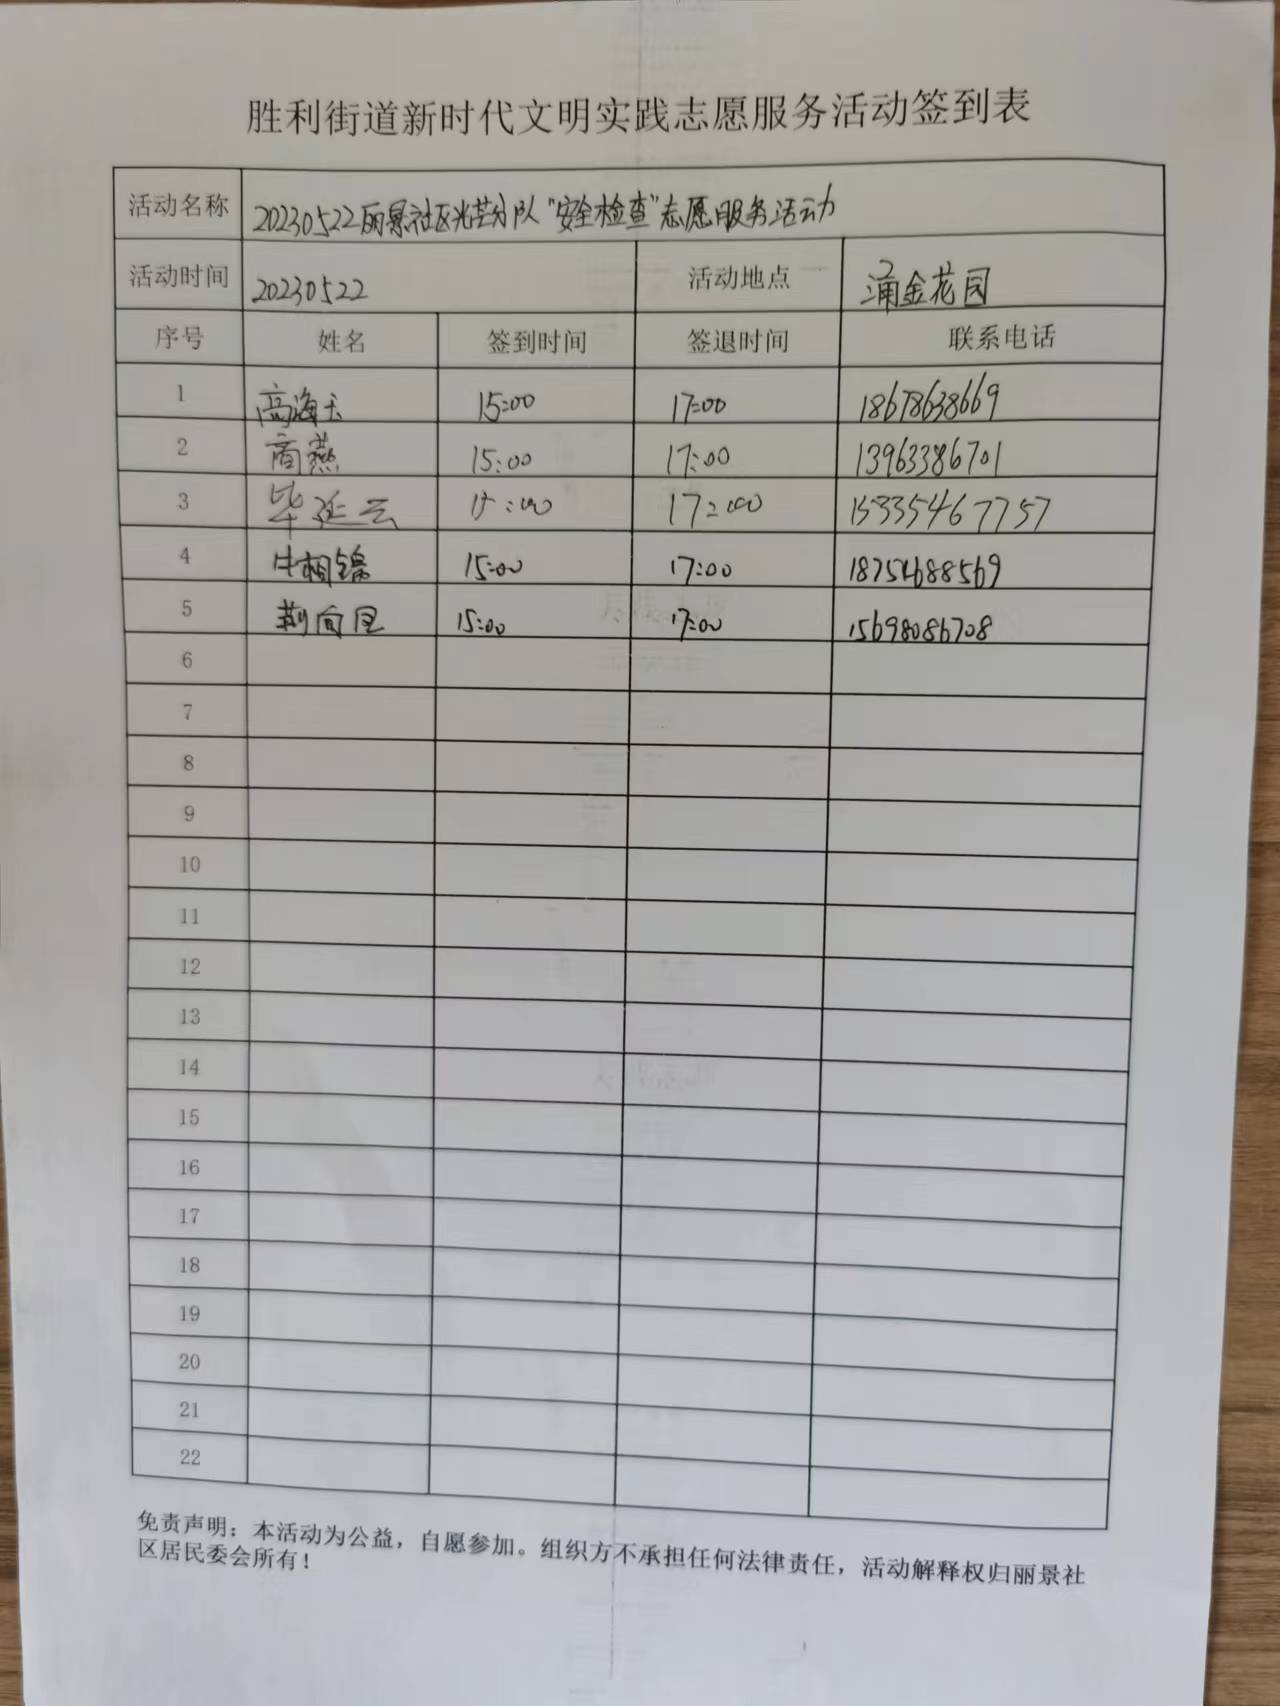 胜利街道新时代文明实践志愿服务活动签到表
活动名称 20230522丽景社区光芒分队"安全检查"志愿服务活动
活动时间 20230522 活动地点 涌金花园
序号 姓名 签到时间 签退时间 联系电话
1 高海玉 15:00 17:00 18678638669
2 商燕 15:00 17:00 13963386701
3 毕延云 15:00 17:00 15335467757
4 牛相锦 15:00 17:00 18754688569
5 荆向 15:00 17:00 15698086708
6
7
8
9
10
11
12
13
14
15
16
17
18
19
20
21
22
免责声明：本活动为公益，自愿参加。组织方不承担任何法律责任，活动解释权归丽景社
区居民委会所有！